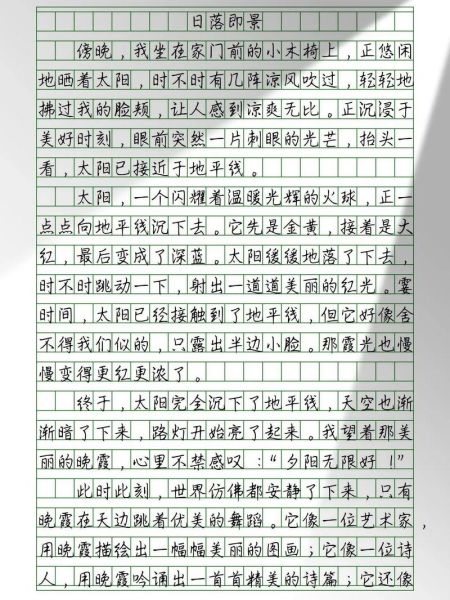 日落即景
傍晚，我坐在家门前的小木椅上，正悠闲
地晒着太阳，时不时有几阵凉风吹过，轻轻地
拂过我的脸颊，让人感到凉爽无比。正沉浸于
美好时刻，眼前突然一片刺眼的光芒，抬头一
看，太阳已接近于地平线。
太阳，一个闪耀着温暖光辉的火球，正一
点点向地平线沉下去。它先是金黄，接着是大
红，最后变成了深蓝。太阳缓缓地落了下去，
时不时跳动一下，射出一道道美丽的红光。霎
时间，太阳已经接触到了地平线，但它好像舍
不得我们似的，只露出半边小脸。那霞光也慢
慢变得更红更浓了。
终于，太阳完全沉下了地平线，天空也渐
渐暗了下来，路灯开始亮了起来。我望着那美
丽的晚霞，心里不禁感叹：“夕阳无限好！”
此时此刻，世界仿佛都安静了下来，只有
晚霞在天边跳着优美的舞蹈。它像一位艺术家，
用晚霞描绘出一幅幅美丽的图画；它像一位诗
人，用晚霞吟诵出一首首精美的诗篇；它还像